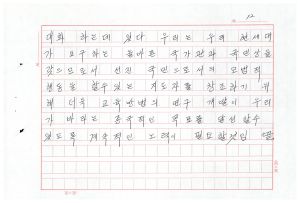 12
대화 하는데 있다 우리는 우리 현세대
가 요구하는 올바른 국가관과 국민상을
갖으므로서 선진 국민으로서의 모범적
행동을 할수있는 지도자를 창조하기 위
해 더욱 교육방법의 연구 개발이 우리
가 바라는 궁극적인 목표를 달성할수
있도록 계속적인 노력이 필요할것임 끝.